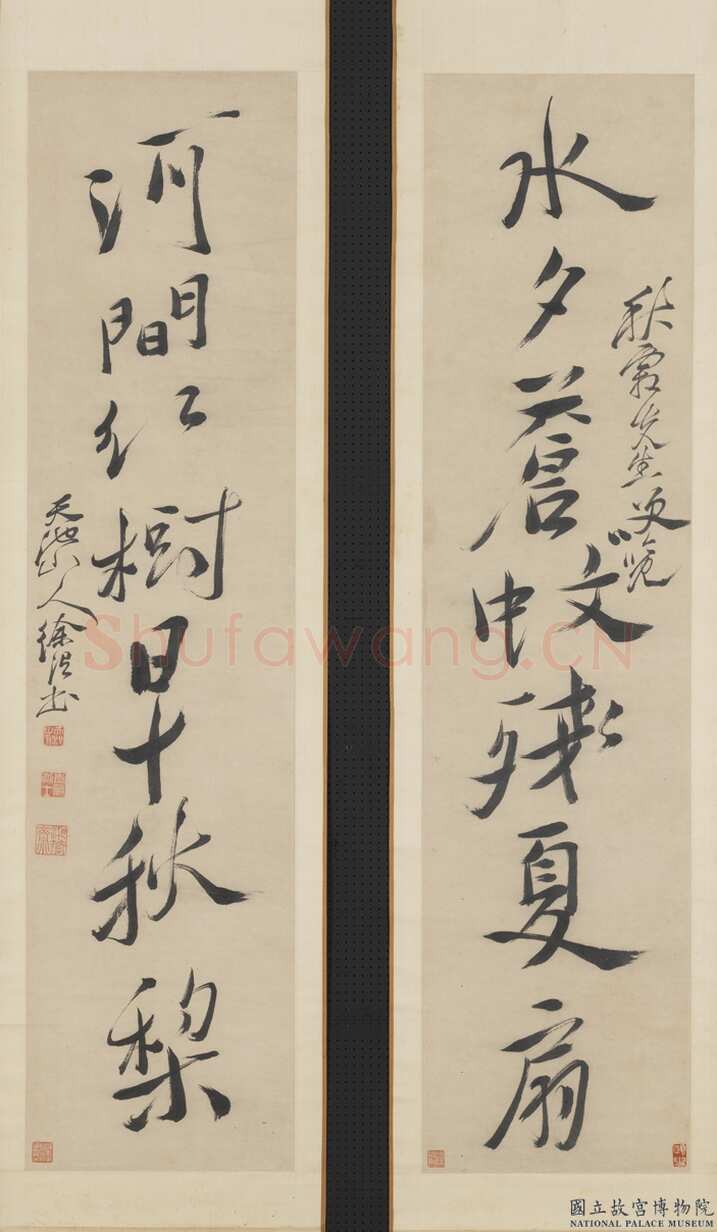 水夕蒼蚊殘夏扇
秋霞先生覽
河間紅樹早秋梨
天池山人徐渭書
Shufawang.CN
國立故宮博物院
NATIONAL PALACE MUSEUM